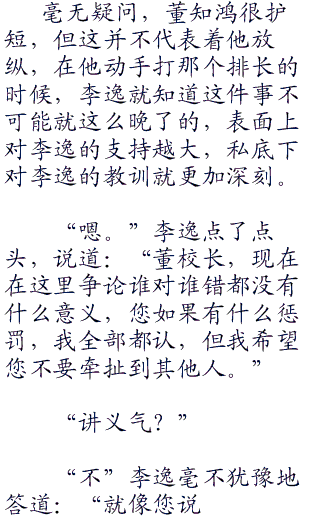 毫无疑问，董知鸿很护
短，但这并不代表着他放
纵，在他动手打那个排长的
时候，李逸就知道这件事不
可能就这么晚了的，表面上
对李逸的支持越大，私底下
对李逸的教训就更加深刻。
“嗯。”李逸点了点
头，说道：“董校长，现在
在这里争论谁对谁错都没有
什么意义，您如果有什么惩
罚，我全部都认，但我希望
您不要牵扯到其他人。”
“讲义气？”
“不”李逸毫不犹豫地
答道：“就像您说